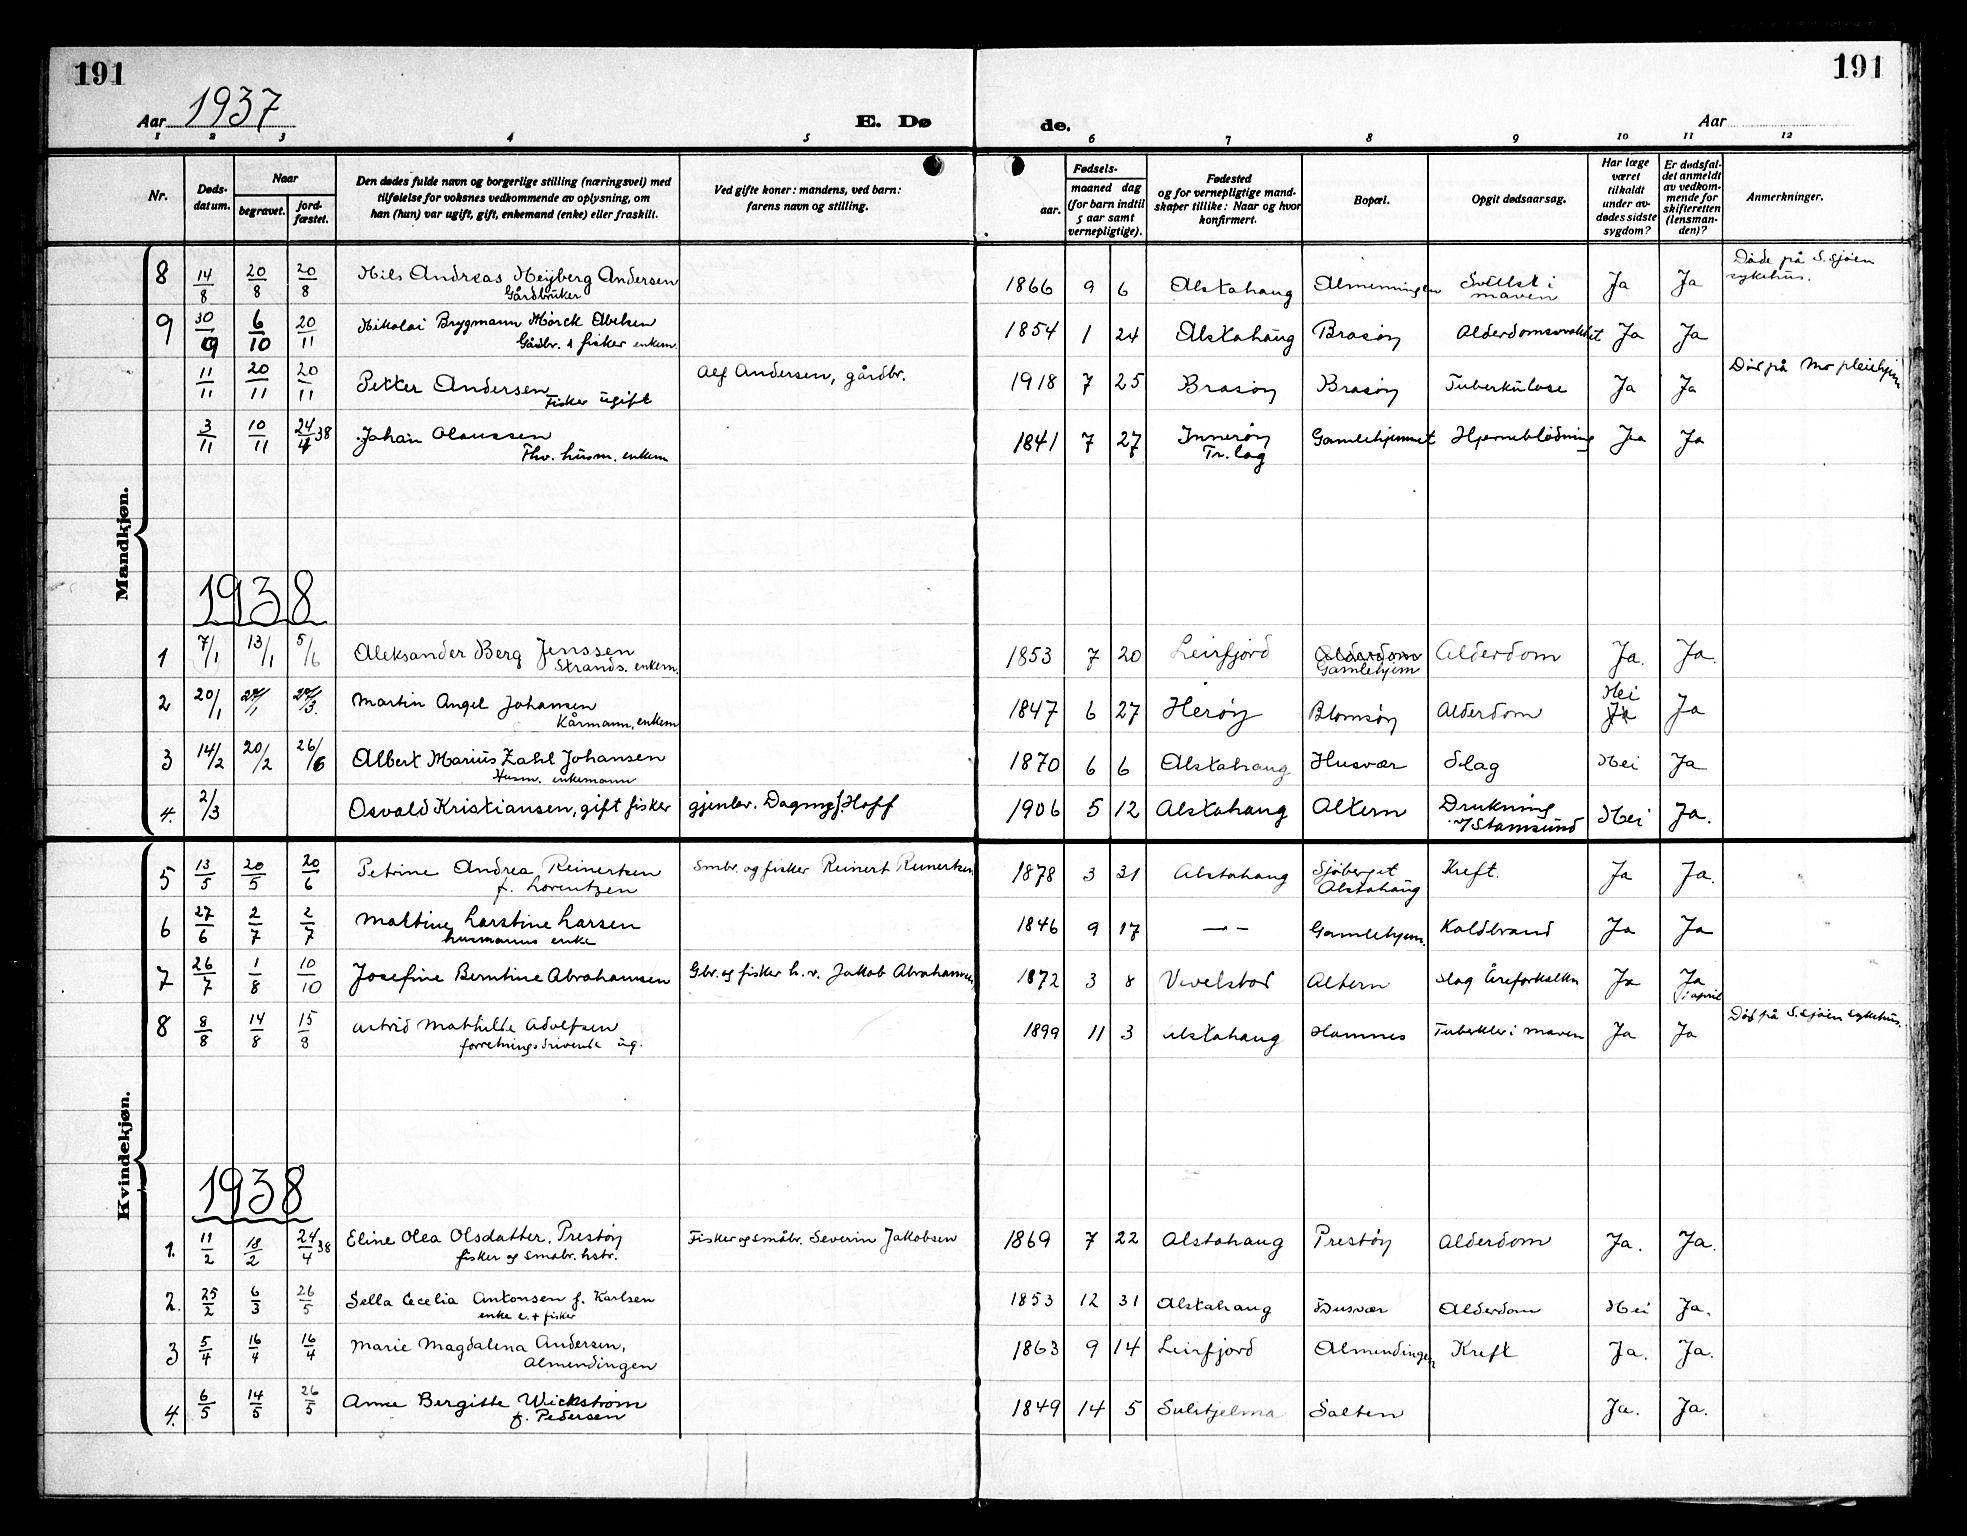 191
191
Aar 1937
E. Dø
de.
Aar
1 2 3 4 5 6 7 8 9 10 11 12
Nr.
Døds-
datum.
Naar
begravet.
jord-
fæstet.
Den dødes fulde navn og borgerlige stilling (næringsvei) med
tilføielse for voksnes vedkommende av oplysning, om
han (hun) var ugift, gift, enkemand (enke) eller fraskilt.
Ved gifte koner: mandens, ved barn:
farens navn og stilling.
Fødsels-
aar.
maaned dag
(for barn indtil
5 aar samt
vernepligtige).
Fødested
og for vernepligtige mand-
skaper tillike: Naar og hvor
konfirmert.
Bopæl.
Opgit dødsaarsag.
Har læge
været
tilkaldt
under av-
dødes sidste
sygdom?
Er dødsfal-
det anmeldt
av vedkom-
mende for
skifteretten
(lensman-
den)?
Anmerkninger.
Mandkjøn.
8 14/8 20/8 20/8 Nils Andreas Meyberg Andersen 1866 9 6 Alstahaug Almenningen Svulst i Ja Ja Døde på S.sjøen
Gårdbruker maven sykehus.
9 30/9 6/10 20/11 Nikolai Brygmann Mørck Abelsen 1854 1 24 Alstahaug Brasøy Alderdomssvakhet Ja Ja
Gårdbr. & fisker enkem.
11/11 20/11 20/11 Petter Andersen Alf Andersen, gårdbr. 1918 7 25 Brasøy Brasøy Tuberkulose Ja Ja Død på Mo pleiehjem
Fisker ugift
3/11 10/11 24/4 38 Johan Olaussen 1841 7 27 Innerøy Gamlehjemmet Hjerneblødning Ja Ja
Fhv. husm. enkem Tr. lag
1938
1 7/1 13/1 5/6 Aleksander Berg Jenssen 1853 7 20 Leirfjord Alderdom Alderdom Ja. Ja.
Strands. enkem. Gamlehjem
2 20/1 27/1 27/3. Martin Angel Johansen 1847 6 27 Herøy Blomsøy Alderdom Nei Ja Ja
Kårmann, enkem
3 14/2 20/2 26/6 Albert Marius Zahl Johansen 1870 6 6 Alstahaug Husvær Slag Nei Ja
Husm. enkemann
4. 2/3 Osvald Kristiansen, gift fisker gjenlev. Dagny f. Hoff 1906 5 12 Alstahaug Altern Drukning Nei Ja.
i/Stamsund
Kvindekjøn.
5 13/5 20/5 20/6 Petrine Andrea Reinertsen Smbr. og fisker Reinert Reinertsen 1878 3 31 Alstahaug Sjøberget Kreft. Ja Ja.
f. Lorentzen Alstahaug
6 27/6 2/7 2/7 Martine Larstine Larsen 1846 9 17 — – Gamlehjem. Koldbrand Ja Ja
husmanns enke
7 26/7 1/8 10/10 Josefine Berntine Abrahamsen Gbr. og fisker h. v. Jakob Abrahamsen, 1872 3 8 Vevelstad Altern Slag Åreforkalkn Ja Ja
i april
8 8/8 14/8 15/8 Astrid Mathilde Adolfsen 1899 11 3 Alstahaug Hamnes Tuberkler i maven Ja Ja Død på S.sjøen sykehus.
forretningsdrivende ug.
1938
1. 11/2 18/2 24/4 38 Eline Olea Olsdatter, Prestøy Fisker og småbr. Severin Jakobsen 1869 7 22 Alstahaug Prestøy Alderdom Ja. Ja.
fisker og småbr. hstr.
2. 25/2 6/3 26/5 Sella Cecelia Antonsen f. Karlsen 1853 12 31 Alstahaug Husvær Alderdom Nei Ja.
enke e. + fisker
3 5/4 16/4 16/4 Marie Magdalena Andersen, 1863 9 14 Leirfjord Almendingen Kreft Ja. Ja.
Almendingen
4. 6/5 14/5 26/5 Anne Bergitte Wickstrøm 1849 14 5 Sulitjelma Salten Ja. Ja.
f. Pedersen